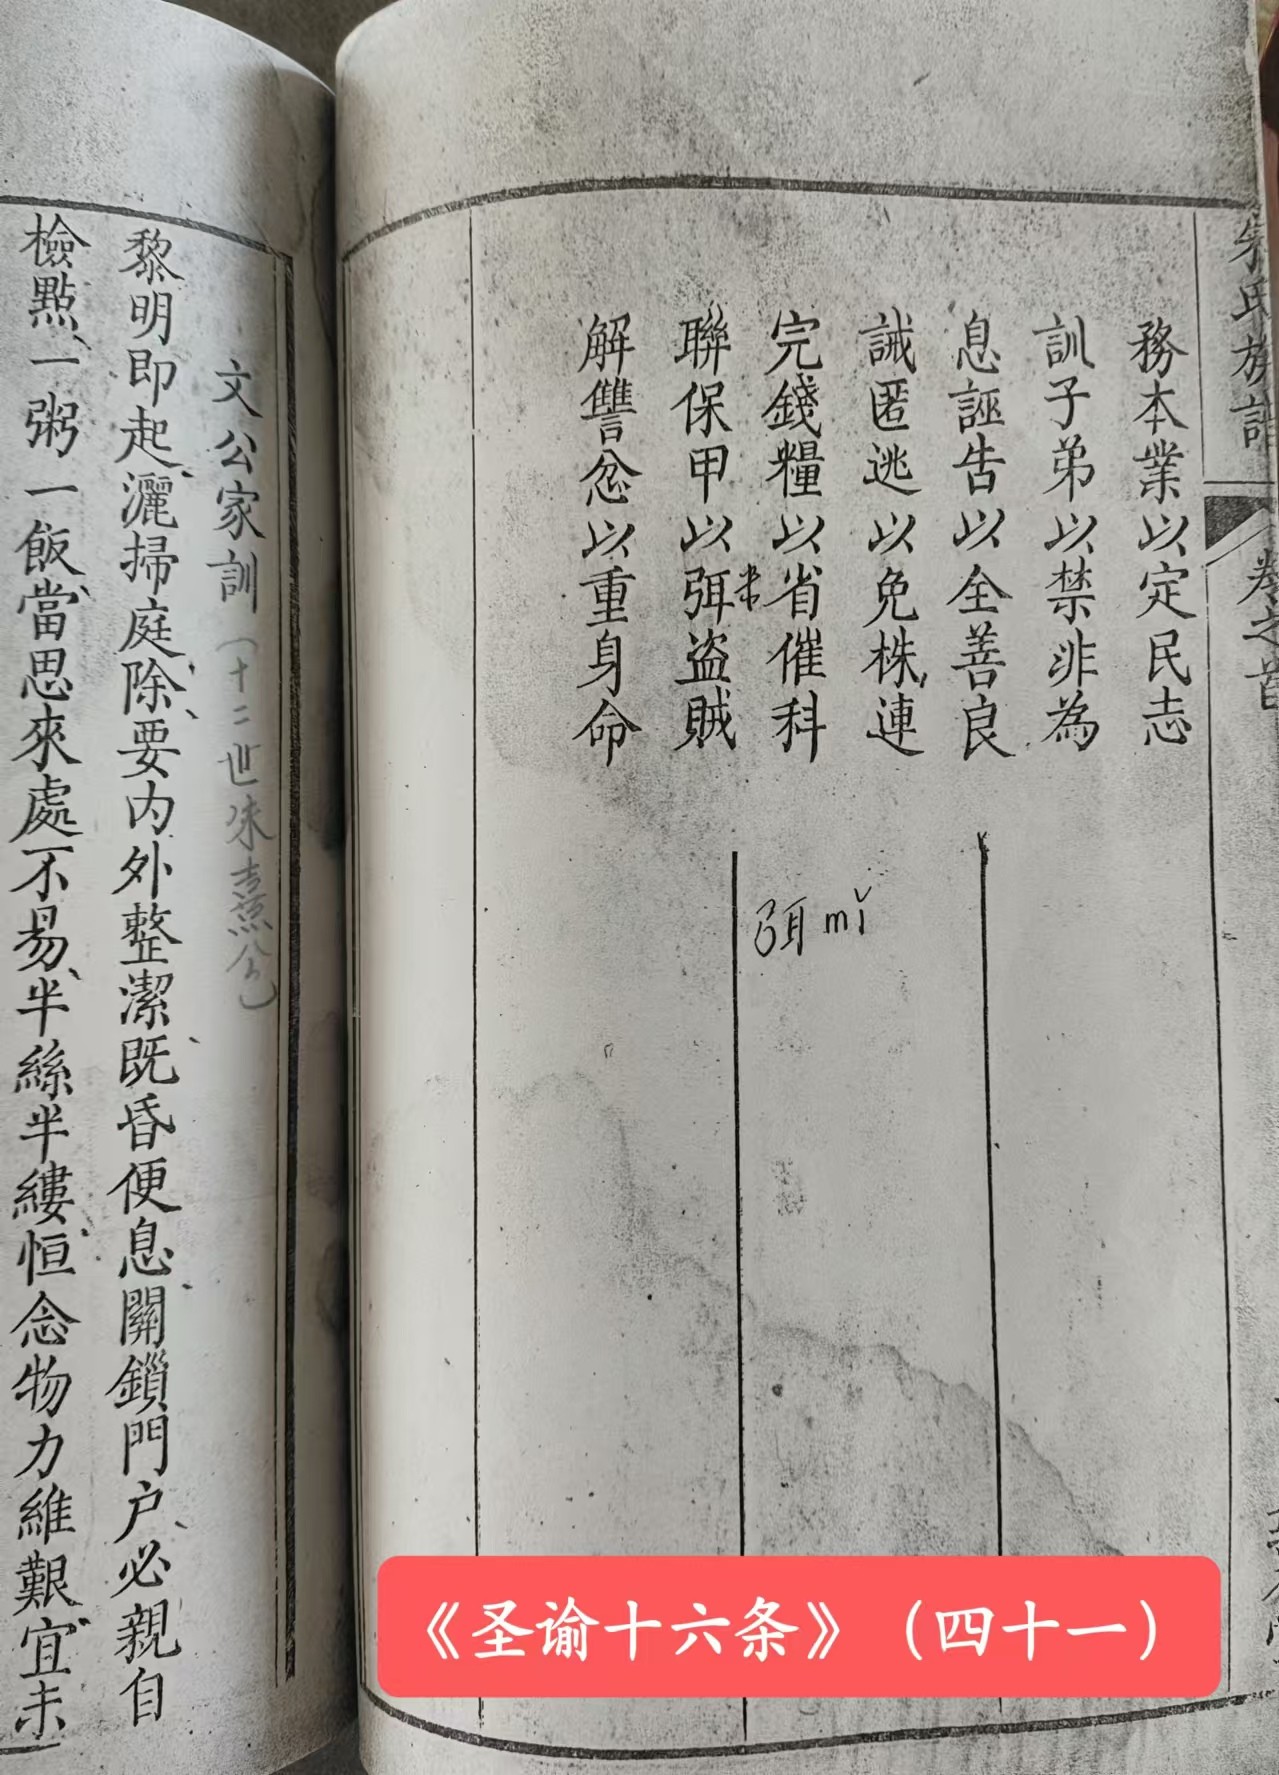 朱氏族譜
卷之首
務本業以定民志
訓子弟以禁非為
息誣告以全善良
誡匿逃以免株連
完錢糧以省催科
聯保甲以弭盜賊
解讐忿以重身命
弭 mǐ
文公家訓（十二世朱熹公）
黎明即起、灑掃庭除、要内外整潔、既昏便息、關鎖門户、必親自
檢點、一粥一飯、當思來處不易、半絲半縷、恒念物力維艱、宜未
《圣谕十六条》（四十一）